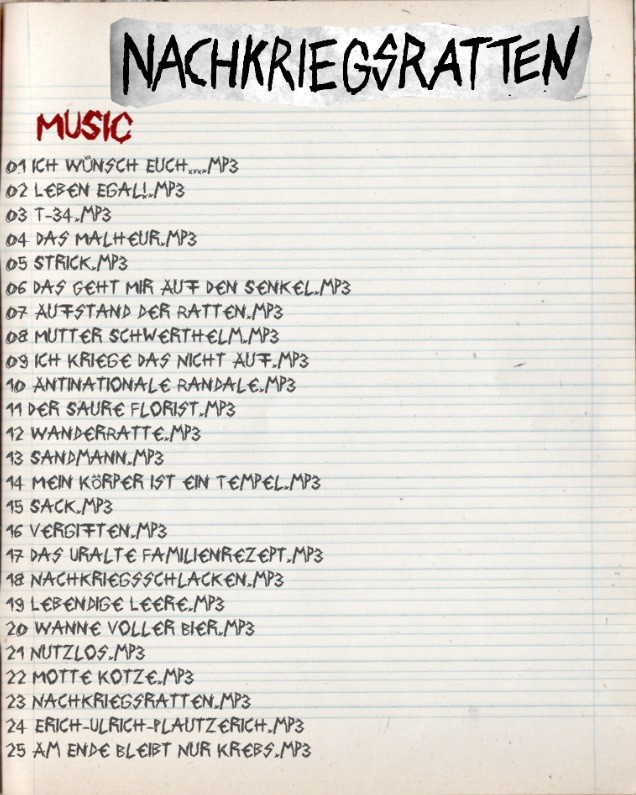 NACHKRIEGSRATTEN
MUSIC
01 ICH WÜNSCH EUCH....MP3
02 LEBEN EGAL!.MP3
03 T-34.MP3
04 DAS MALHEUR.MP3
05 STRICK.MP3
06 DAS GEHT MIR AUF DEN SENKEL.MP3
07 AUFSTAND DER RATTEN.MP3
08 MUTTER SCHWERTHELM.MP3
09 ICH KRIEGE DAS NICHT AUF.MP3
10 ANTINATIONALE RANDALE.MP3
11 DER SAURE FLORIST.MP3
12 WANDERRATTE.MP3
13 SANDMANN.MP3
14 MEIN KÖRPER IST EIN TEMPEL.MP3
15 SACK.MP3
16 VERGIFTEN.MP3
17 DAS URALTE FAMILIENREZEPT.MP3
18 NACHKRIEGSSCHLACKEN.MP3
19 LEBENDIGE LEERE.MP3
20 WANNE VOLLER BIER.MP3
21 NUTZLOS.MP3
22 MOTTE KOTZE.MP3
23 NACHKRIEGSRATTEN.MP3
24 ERICH-ULRICH-PLAUTZERICH.MP3
25 AM ENDE BLEIBT NUR KREBS.MP3